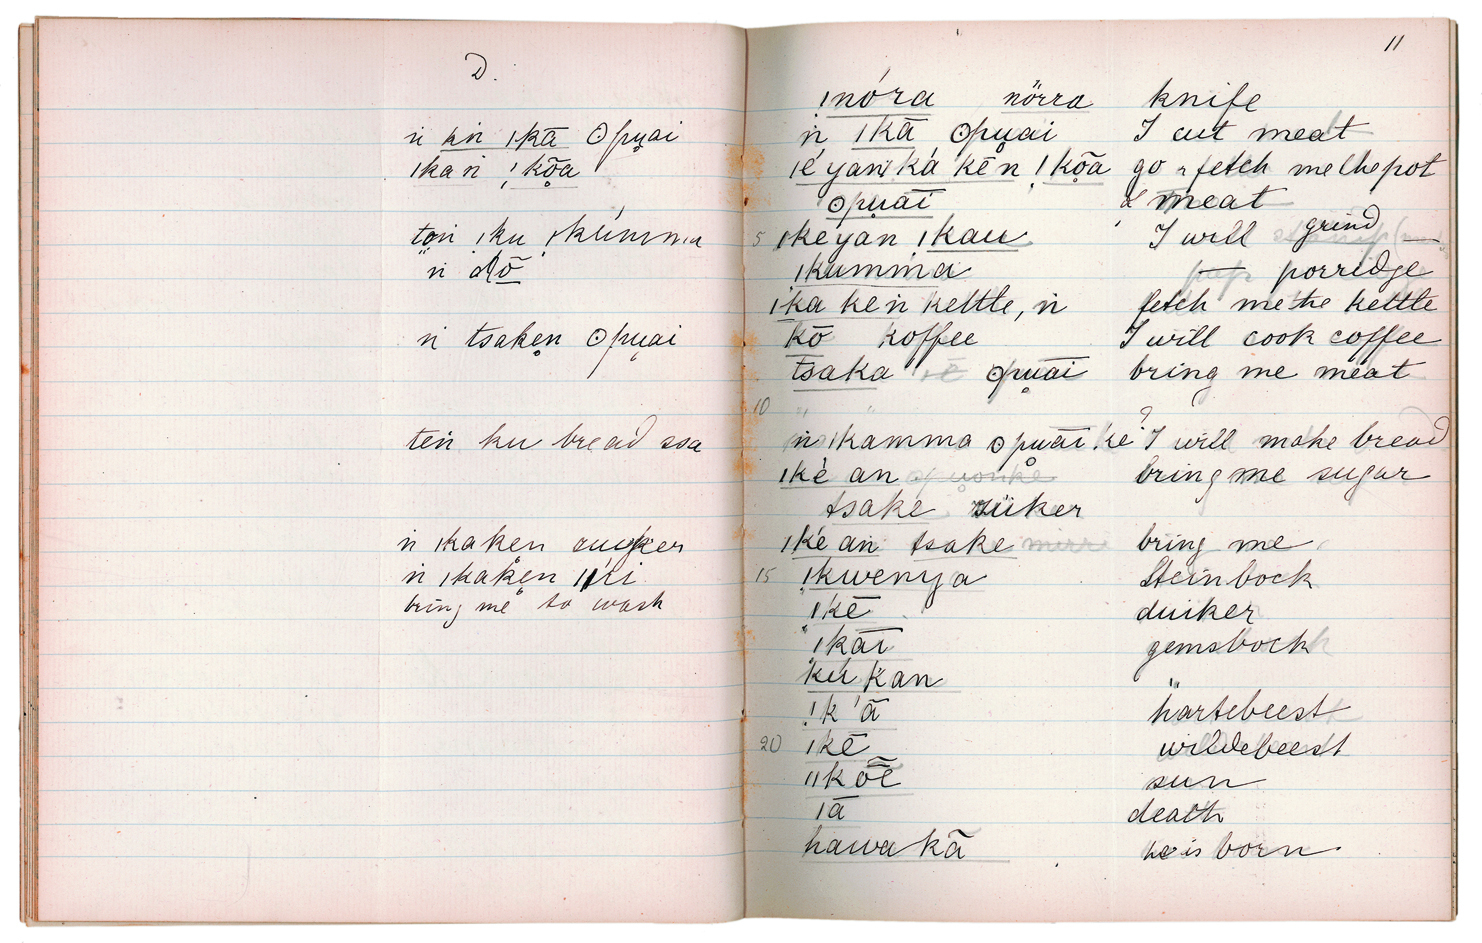 D.
ṅ k̲i̲n̲ ǀk̲ā̲ ʘpu̯ai
ǀkaṅ ǃkõ̯a
toṅ ǀku ǀkúmma
ṅ dō
ṅ tsaken ʘpu̯ai
teṅ ku bread ssa
ṅ ǀkaken suyker
ṅ ǀkaken ǁri
bring me to wash
11
ǃnóra nörra knife
ṅ ǀkā ʘpu̯ai I cut meat
ǀéyaṅ ká kēn ǃkõ̯a go & fetch me the pot
ʘpu̯aī & meat
5 ǀkéyaṅ ǀkau I will grind
ǀkumma porridge
ǀka keṅ kettle, ṅ fetch me the kettle
kō koffee I will cook coffee
tsaka ʘpu̯ai bring me meat
10
ṅ ǀkamma ʘpu̯aī ke ? I will make bread
ǀké an bring me sugar
tsake süker
ǀké an tsake bring me
15 ǃkwenya Steinbock
ǀkē duiker
ǀkaī gemsbock
kúkan "
ǃk'ā hartebeest
20 ǀkē wildebeest
ǁkõē sun
ǀā death
hawa kā he is born